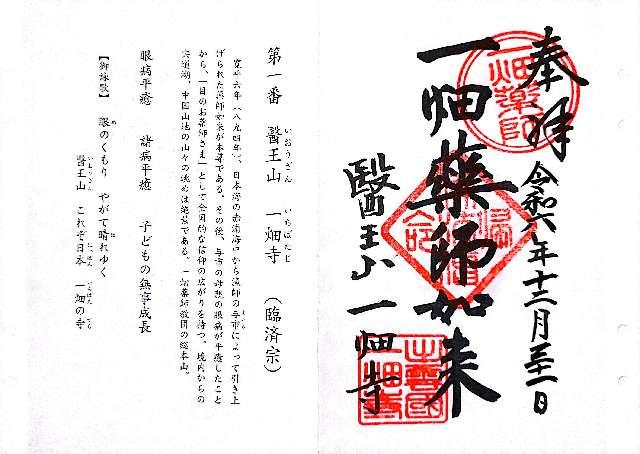 奉拝
令和六年十二月
一畑薬師
一畑薬師如来
醫王山 一畑寺
出雲國
一畑寺
第一番 醫王山 一畑寺 (臨済宗)
寛平六年(八九四年)、日本海の赤浦海中から漁師の与市によって引き上
げられた薬師如来が本尊である。その後、与市の母親の眼病が平癒したこと
から、「目のお薬師さま」として全国的な信仰の広がりを持つ。境内からの
宍道湖、中国山地の山々の眺めは絶景である。一畑薬師教団の総本山。
眼病平癒 諸病平癒 子どもの無事成長
【御詠歌】 眼のくもり やがて晴れゆく
醫王山 これぞ日本 一畑の寺